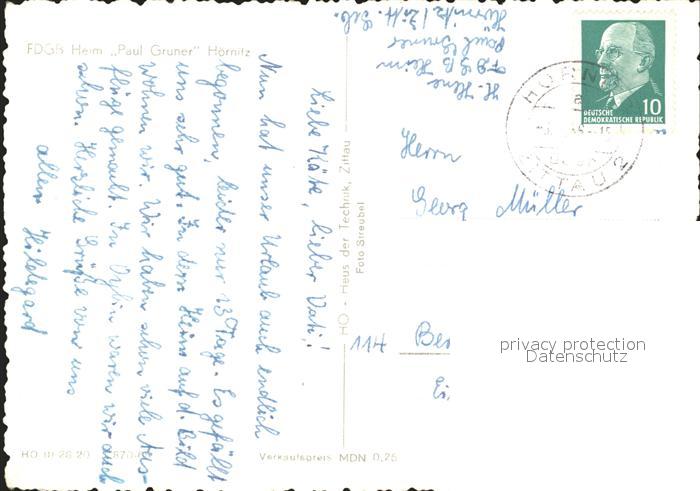 FDGB Heim „Paul Gruner" Hörnitz
Liebe Käte, lieber Vati!
Nun hat unser Urlaub auch endlich
begonnen, leider nur 13 Tage. Es gefällt
uns sehr gut. In dem Heim auf d. Bild
wohnen wir. Wir haben schon viele Aus-
flüge gemacht. In Oybin waren wir auch
schon. Herzliche Grüße von uns
allen Hildegard
HO - Haus der Technik, Zittau
Foto Streubel
FDGB Heim
Paul Gruner
Hörnitz / Zitt. Geb.
DEUTSCHE
DEMOKRATISCHE REPUBLIK
10
HÖRNITZ
ZITTAU 2
Herrn
Georg Müller
114 Ber
Ei
privacy protection
Datenschutz
HO III-28-20
Verkaufspreis MDN 0,25